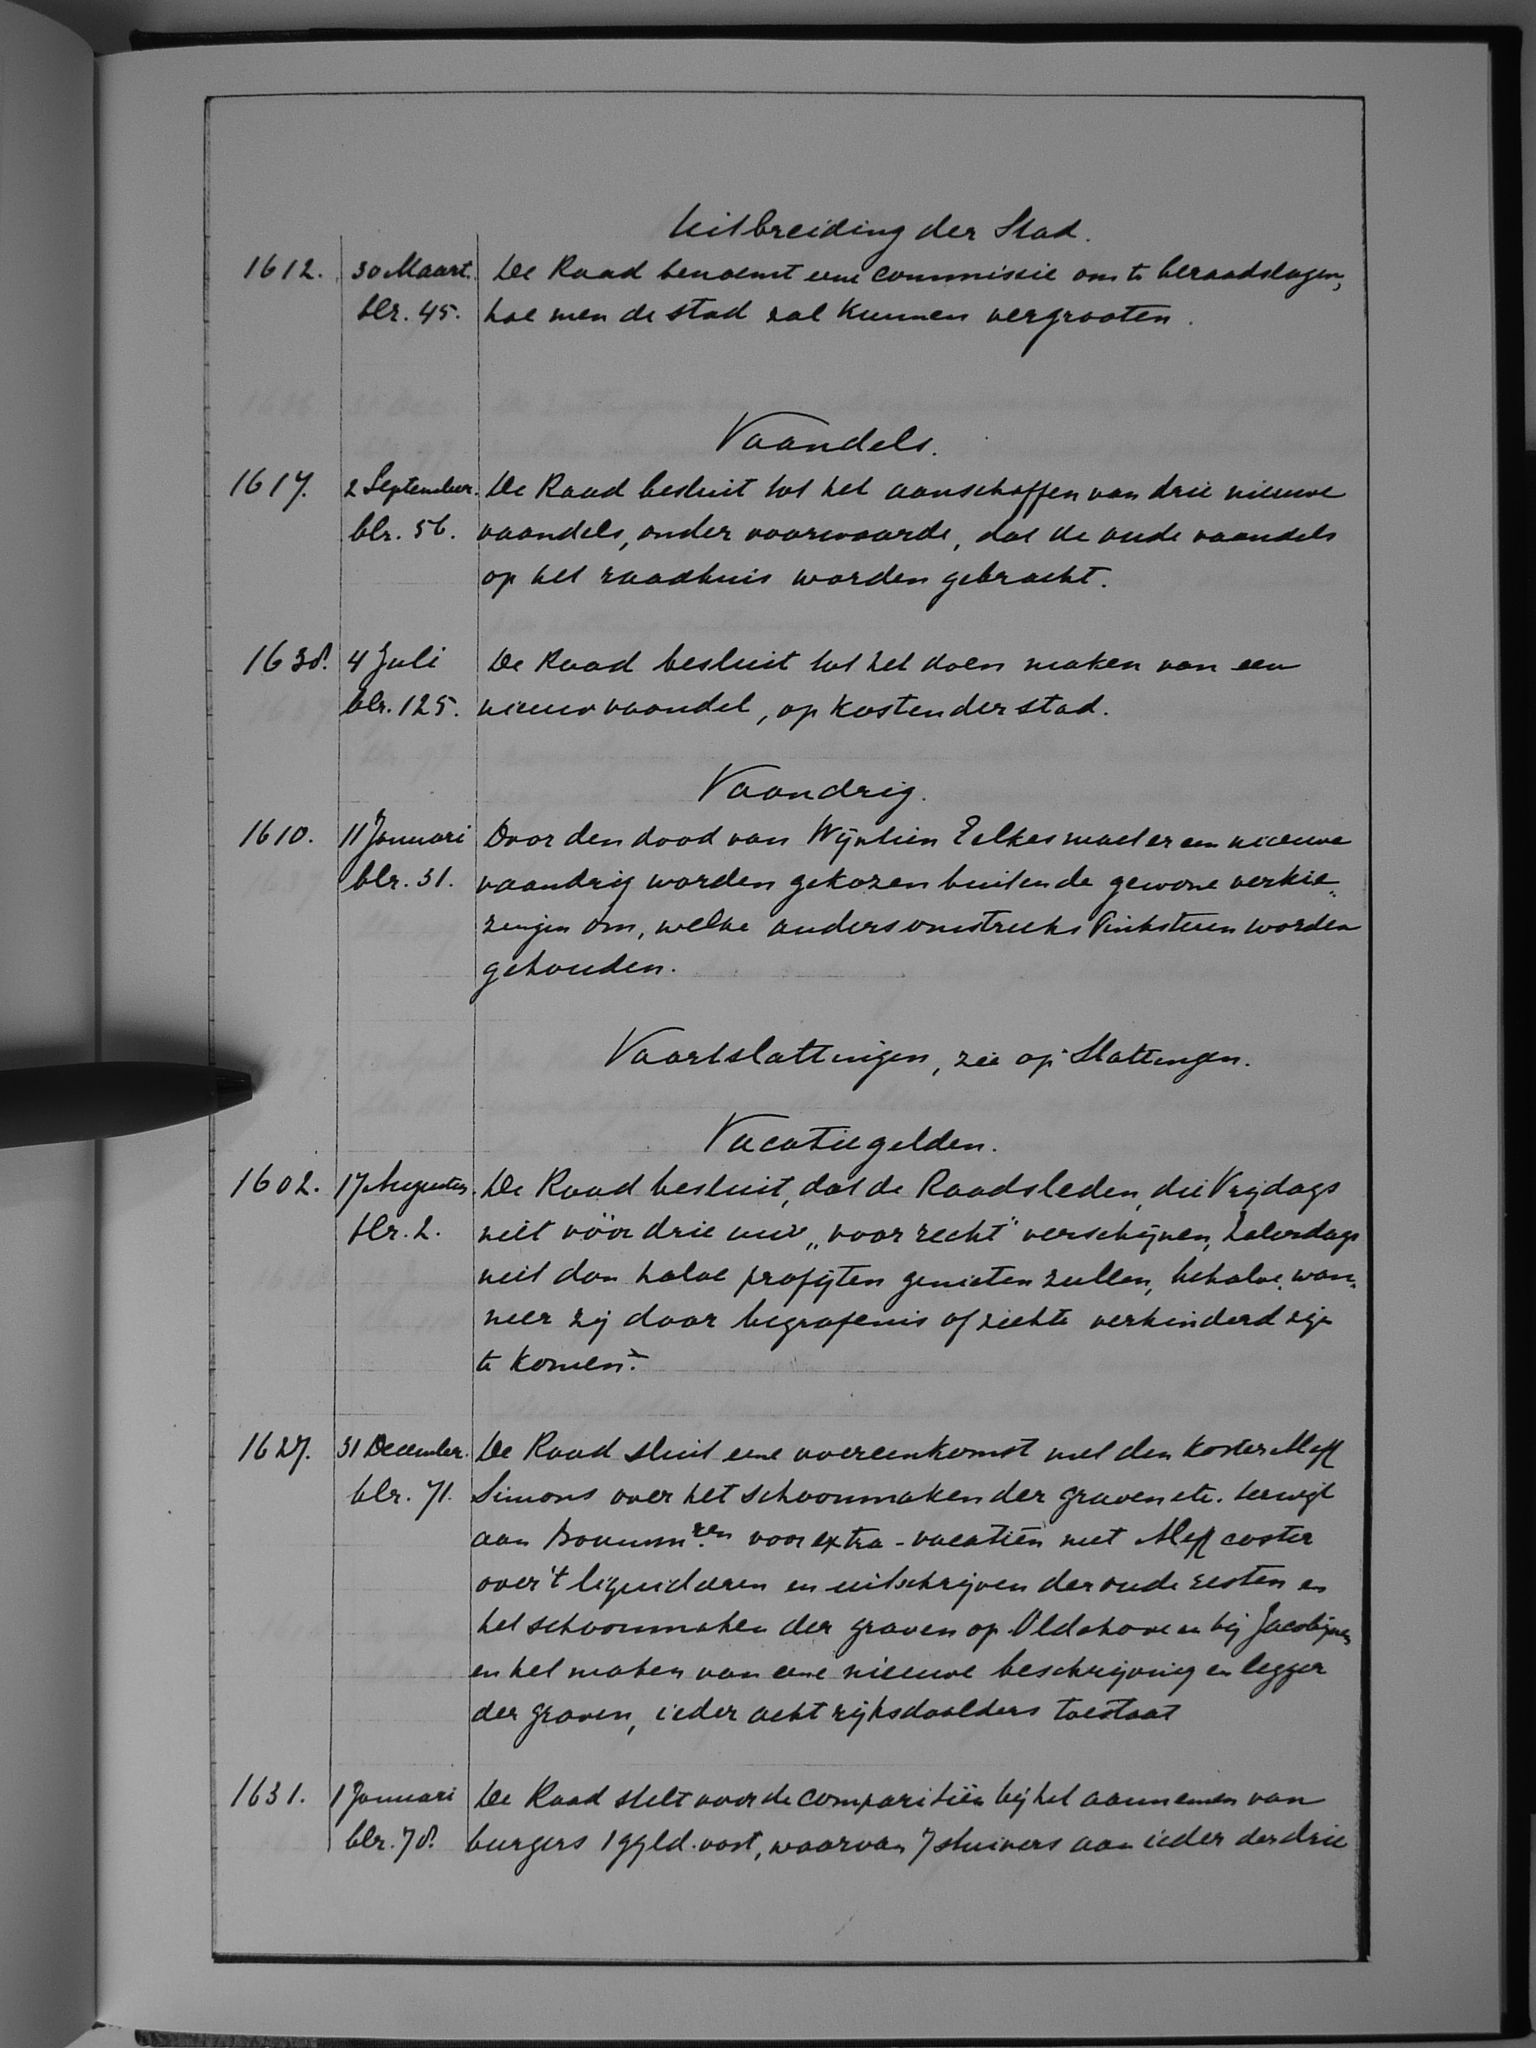 Uitbreiding der Stad.
1612. 30 Maart. De Raad benoemt eene commissie om te beraadslagen,
blr. 45. hoe men de stad zal kunnen vergrooten.
Vaandels.
1617. 2 September. De Raad besluit tot het aanschaffen van drie nieuwe
blr. 56. vaandels, onder voorwaarde, dat de oude vaandels
op het raadhuis worden gebracht.
1638. 4 Juli De Raad besluit tot het doen maken van een
blr. 125. nieuw vaandel, op kosten der stad.
Vaandrig.
1610. 11 Januari Door den dood van Wijntien Eelkes moet er een nieuwe
blr. 31. vaandrig worden gekozen buiten de gewone verkie„
zingen om, welke anders omstreeks Pinksteren worden
gehouden.
Vaartslattingen, zie op Slattingen.
Vacatiegelden.
1602. 17 Augustus. De Raad besluit, dat de Raadsleden, die Vrijdags
blr. 2. niet vóór drie uur „voor recht" verschijnen, Zaterdags
niet dan halve profijten genieten zullen, behalve, wan„
neer zij door begrafenis of ziekte verhinderd zijn
te komen.
1627. 31 December. De Raad sluit eene overeenkomst met den koster
blr. 71. Simons over het schoonmaken der graven etc. terwijl
aan voor extra-vacatiën met coster
over 't liquideren en uitschrijven der oude resten en
het schoonmaken der graven op Oldehove en bij Jacobijnen
en het maken van eene nieuwe beschrijving en legger
der graven, ieder acht rijksdaalders toestaat
1631. 1 Januari De Raad stelt voor de comparitiën bij het aannemen van
blr. 78. burgers 1 ggld. vast, waarvan 7 stuivers aan ieder der drie